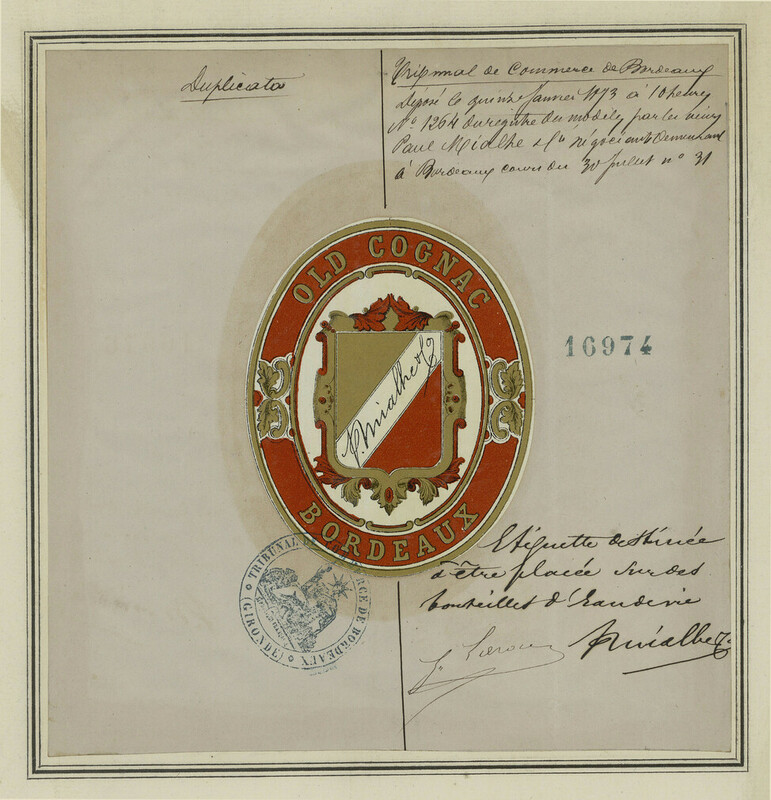 Duplicata
Tribunal de Commerce de Bordeaux
Déposé le quinze Janvier 1873 à 10 heures
No 1264 du registre des modèles par les sieurs
Paul Mialhe & Cie négociants demeurant
à Bordeaux cours du 30 Juillet no 31
OLD COGNAC
P. Mialhe & Cie
BORDEAUX
16974
Etiquette destinée
à être placée sur des
bouteilles d'Eaudevie
P Mialhe & Cie
TRIBUNAL DE COMMERCE DE BORDEAUX
(GIRONDE)